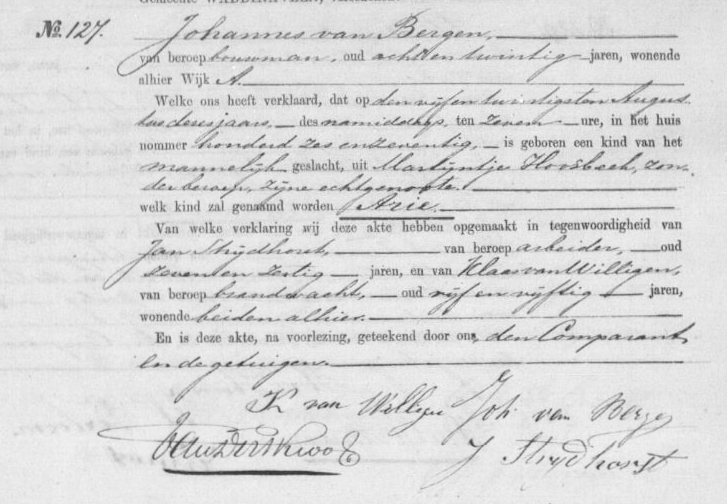 Gemeente WADDINXVEEN,
No. 127. Johannes van Bergen,
van beroep bouwman, oud acht en twintig jaren, wonende
alhier Wijk A.
Welke ons heeft verklaard, dat op den vijf en twintigsten Augus-
tus dezes jaars, des namiddags, ten zeven ure, in het huis
nommer honderd zes en zeventig, is geboren een kind van het
mannelijk geslacht, uit Martijntje Hoosbeek, zon-
der beroep, zijne echtgenoote.
welk kind zal genaamd worden Arie.
Van welke verklaring wij deze akte hebben opgemaakt in tegenwoordigheid van
Jan Strijdhorst, van beroep arbeider, oud
zeven en zestig jaren, en van Klaas van Willigen,
van beroep brandwacht, oud vijf en vijftig jaren,
wonende beiden alhier.
En is deze akte, na voorlezing, geteekend door ons, den Comparant
en de getuigen.
K van Willigen Joh van Bergen
J Strijdhorst